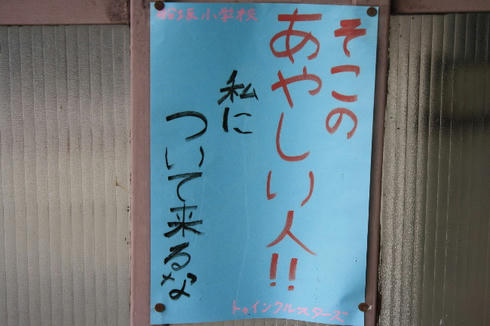 小学校
そこの
あやしい人!!
私に
ついて来るな
トゥインクルスターズ